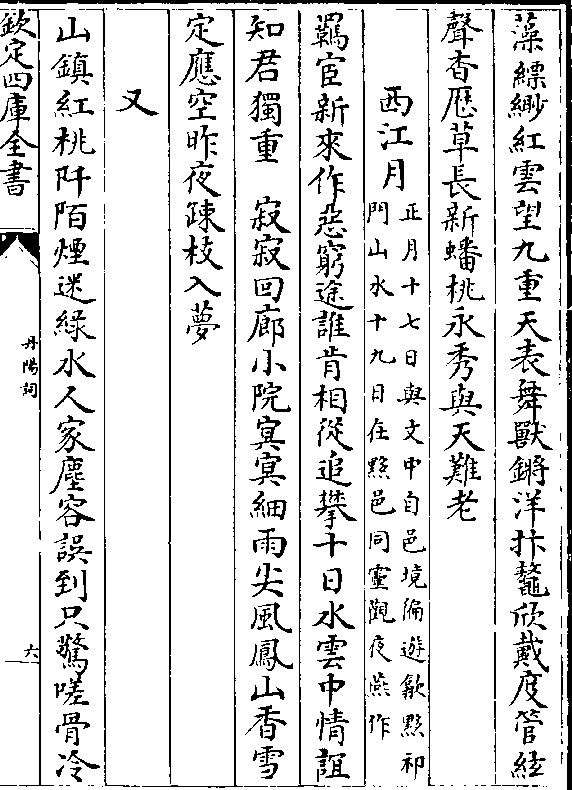 藻縹緲紅雲望九重天表舞獸鏘洋抃鼇欣戴度管絃
聲杳歷草長新蟠桃永秀與天難老
西江月
正月十七日與文中自邑境徧遊歙黟祁
門山水十九日在黟邑同靈觀夜燕作
羈宦新來作惡窮途誰肯相從追攀十日水雲中情誼
知君獨重 寂寂回廊小院冥冥細雨尖風鳳山香雪
定應空昨夜疎枝入夢
又
山鎮紅桃阡陌煙迷綠水人家塵容誤到只驚嗟骨冷
欽定四庫全書
丹陽詞
六